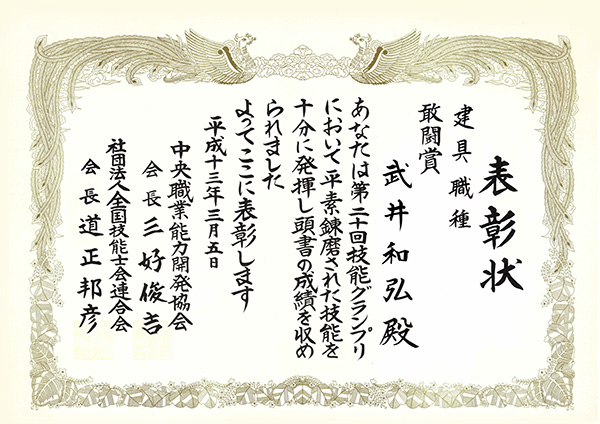 表彰状
建具職種
敢闘賞
武井和弘殿
あなたは第二十回技能グランプリ
において平素錬磨された技能を
十分に発揮し頭書の成績を収め
られました
よってここに表彰します
平成十三年三月五日
中央職業能力開発協会
会長 三好俊吉
社団法人全国技能士会連合会
会長 道正邦彦